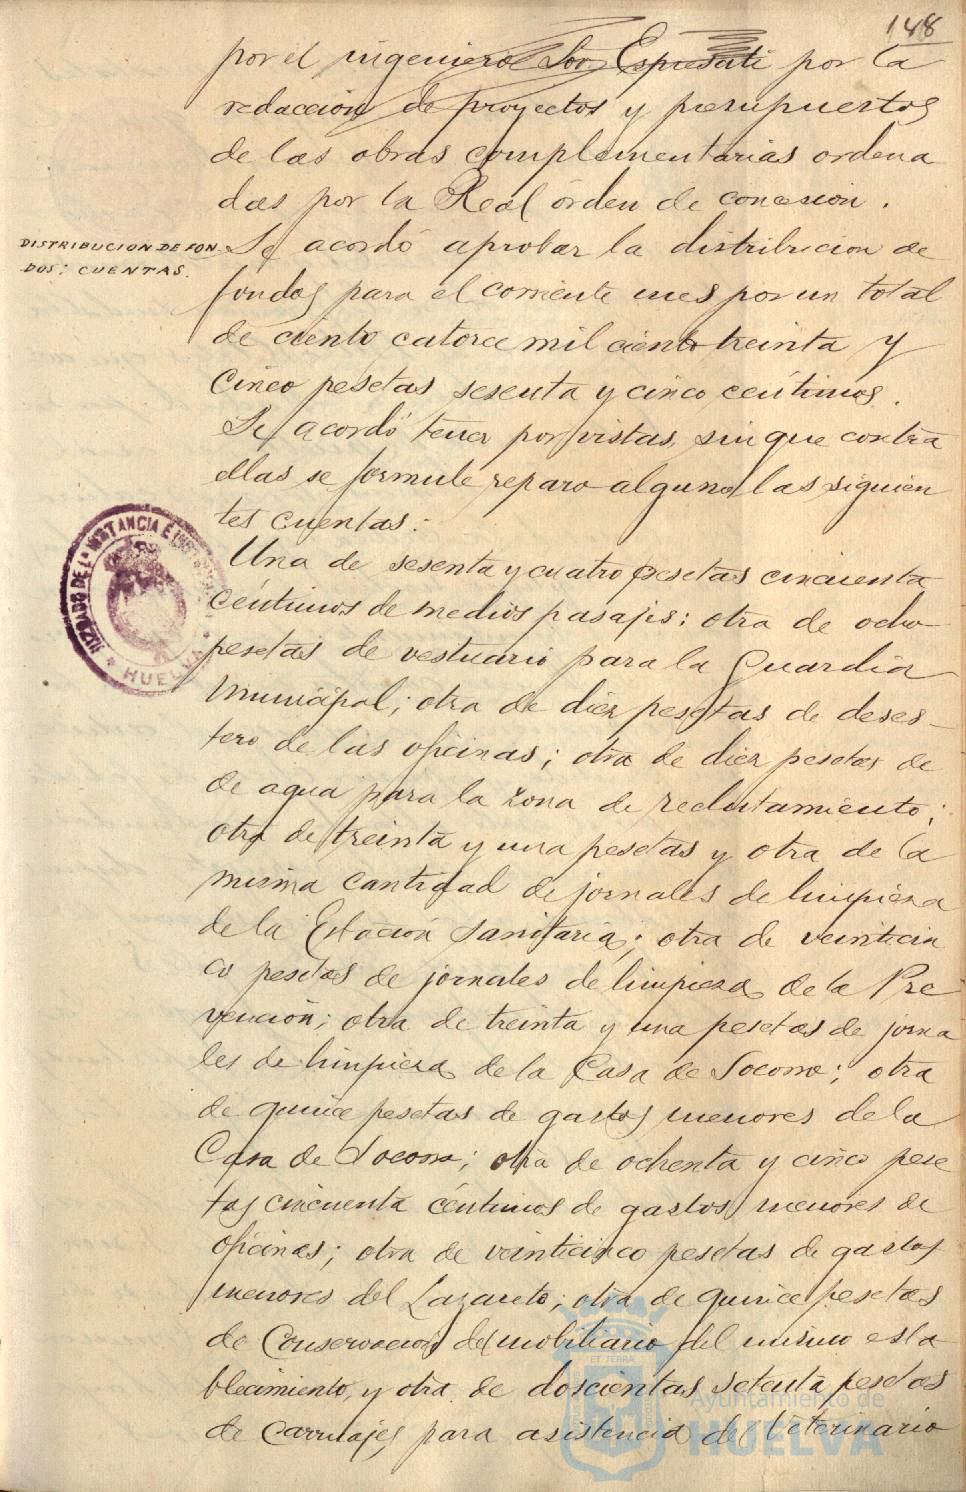 148
por el ingeniero Sor. por la
redacción de proyectos y presupuestos
de las obras complementarias ordena
das por la Real órden de concesion.
DISTRIBUCION DE FON
DOS: CUENTAS.
Se acordó aprobar la distribucion de
fondos para el corriente mes por un total
de ciento catorce mil ciento treinta y
cinco pesetas sesenta y cinco céntimos.
Se acordó tener por vistas, sin que contra
ellas se formule reparo alguno las siguien
tes cuentas:
Una de sesenta y cuatro pesetas cincuenta
céntimos de medios pasajes; otra de ocho
pesetas de vestuario para la Guardia
Municipal; otra de diez pesetas de deses-
tero de las oficinas; otra de diez pesetas de
de agua para la zona de reclutamiento;
otra de treinta y una pesetas y otra de la
misma cantidad de jornales de limpieza
de la Estación Sanitaria; otra de veinticin
co pesetas de jornales de limpieza de la Pre
vención; otra de treinta y una pesetas de jorna
les de limpieza de la Casa de Socorro; otra
de quince pesetas de gastos menores de la
Casa de Socorro; otra de ochenta y cinco pese
tas cincuenta céntimos de gastos menores de
oficinas; otra de veinticinco pesetas de gastos
menores del Lazareto; otra de quince pesetas
de conservacion del mobiliario del mismo esta
blecimiento, y otra de doscientas setenta pesetas
de carruajes para asistencia del Veterinario
JUZGADO DE 1ª INSTANCIA E
HUELVA
Ayuntamiento de
HUELVA